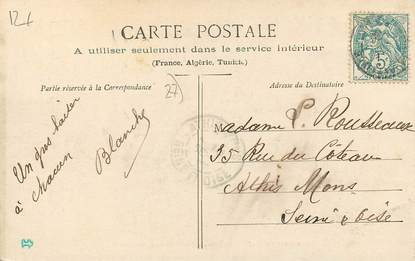 124
CARTE POSTALE
A utiliser seulement dans le service intérieur
(France, Algérie, Tunisie.)
Partie réservée à la Correspondance
27
Adresse du Destinataire
Un gros baiser
à chacun
Blanche
Madame P. Rousseaux
35 Rue du Côteau
Athis Mons
Seine & Oise